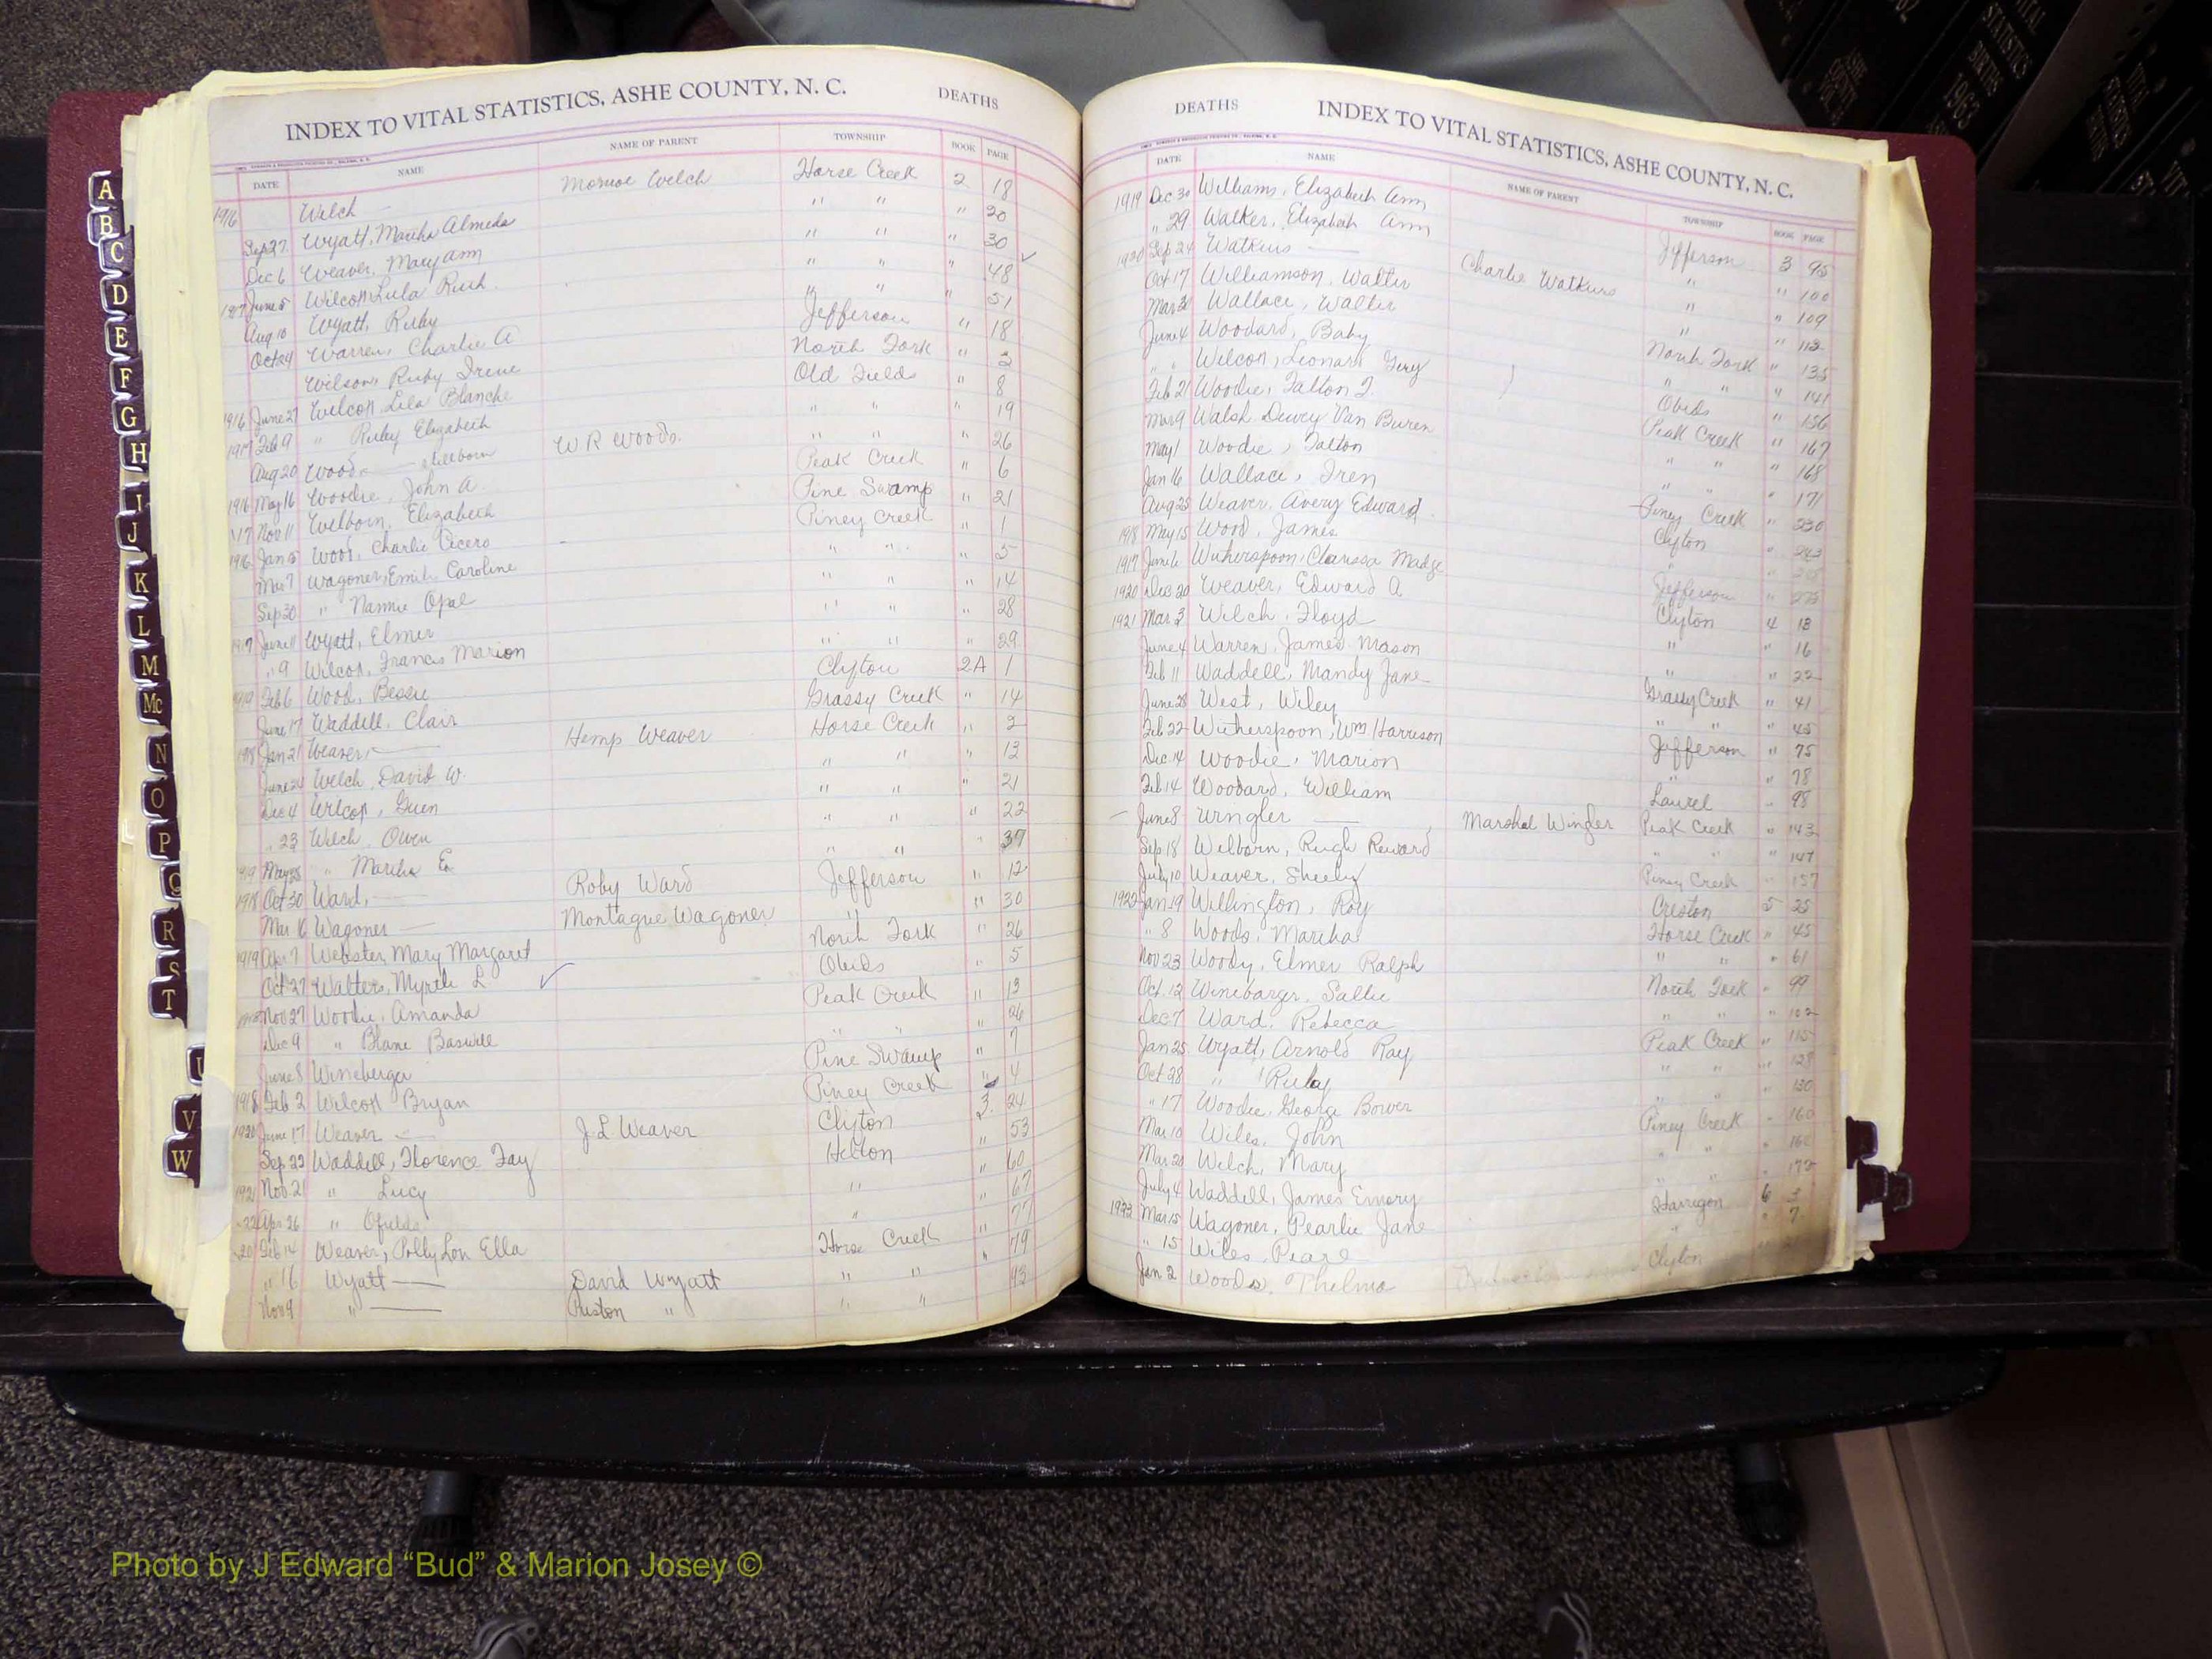 INDEX TO VITAL STATISTICS, ASHE COUNTY, N. C. DEATHS
DATE NAME NAME OF PARENT TOWNSHIP BOOK PAGE
1916 Welch Monroe Welch Horse Creek 2 18
Sep 27 Wyatt, Martha Almeda " " " 20
Dec 6 Weaver, Mary Ann " " " 30
1917 June 5 Wilcox Lula Ruth " " " 48
Aug 10 Wyatt, Ruby " " 51
Oct 24 Warren, Charlie A Jefferson " 18
Wilson, Ruby Irene North Fork " 2
1916 June 27 Wilcox Lela Blanche Old Fields " 8
1917 Feb 9 " Ruby Elizabeth " " " 19
Aug 20 Woods stillborn W R Woods " " " 26
1916 May 16 Woodie, John A. Peak Creek " 6
'17 Nov 11 Welborn, Elizabeth Pine Swamp " 21
1916 Jan 5 Wood, Charlie Cicero Piney Creek " 1
Mar 7 Wagoner, Emily Caroline " " " 5
Sep 30 " Nannie Opal " " " 14
1917 June 11 Wyatt, Elmer " " " 28
" 9 Wilcox, Francis Marion " " " 29
1919 Feb 6 Wood, Bessie Clifton 2A 1
June 17 Waddell, Clair Grassy Creek " 14
1918 Jan 21 Weaver, Hemp Weaver Horse Creek " 2
June 24 Welch, David W. " " 13
Dec 4 Wilcox, Guen " " " 21
" 23 Welch, Owen " " " 22
1919 May 25 " Martha E. " " " 37
1918 Oct 30 Ward, Roby Ward Jefferson " 12
Mar 16 Wagoner Montague Wagoner " " 30
1919 Apr 7 Webster Mary Margaret North Fork " 26
Oct 27 Walters, Myrtle L Obids " 5
Nov 27 Woodie, Amanda Peak Creek " 13
Dec 9 " Blane Baswell " " " 26
June 8 Wineberger Pine Swamp " 7
1918 Feb 2 Wilcox Bryan Piney Creek " 4
1920 June 17 Weaver J. L. Weaver Clifton 3 24
Sep 22 Waddell, Florence Fay Helton " 53
1921 Nov 21 " Lucy " " 60
22 Apr 26 " " " 67
20 Feb 14 Weaver, Polly Lou Ella Horse Creek " 77
" 16 Wyatt David Wyatt " " " 79
Nov 9 " Preston " " " 93
DEATHS INDEX TO VITAL STATISTICS, ASHE COUNTY, N. C.
DATE NAME NAME OF PARENT TOWNSHIP BOOK PAGE
1919 Dec 30 Williams, Elizabeth Ann Jefferson 3 95
" 29 Walker, Elizabeth Ann " " 100
1920 Sep 24 Watkins Charlie Watkins " " 109
Oct 17 Williamson, Walter " " 112
Mar 31 Wallace, Walter North Fork " 135
June 4 Woodard, Baby " " " 141
" " Wilcox, Leonard Obids " 156
Feb 21 Woodie, Talton T. Peak Creek " 167
Mar 9 Walsh Dewey Van Buren " " " 168
May 1 Woodie, Talton " " " 171
Jan 16 Wallace, Iren Piney Creek " 230
Aug 25 Weaver, Avery Edward Clifton " 243
1918 May 15 Wood, James
1917 June 6 Witherspoon, Clarissa Madge Jefferson "
1920 Dec 20 Weaver, Edward A
1921 Mar 3 Welch, Floyd Clifton 4 13
June 4 Warren, James Mason " " 16
Feb 11 Waddell, Mandy Jane " " 22
June 28 West, Wiley Grassy Creek " 41
Feb 22 Witherspoon, Wm Harrison " " " 45
Dec 14 Woodie, Marion Jefferson " 75
Feb 14 Woodard, William " 78
June 8 Wingler Marshal Wingler Laurel " 98
Sep 18 Welborn, Rugh Reward Peak Creek " 143
July 10 Weaver, Sheely " " " 147
Piney Creek " 157
1922 Jan 19 Willington, Roy Creston 5 25
" 8 Woods, Martha Horse Creek " 45
Nov 23 Woody, Elmer Ralph " " " 61
Oct. 12 Winebarger, Sallie North Fork " 99
Dec 7 Ward, Rebecca " " " 102
Jan 25 Wyatt, Arnold Ray Peak Creek " 115
Oct 28 " Ruby " " " 128
" 17 Woodie, George Bower " " " 130
Mar 10 Wiles, John Piney Creek " 160
Mar 20 Welch, Mary " "
July 4 Waddell, James Emory " " " 172
1923 Mar 15 Wagoner, Pearlie Jane Harrigon 6 3
" 15 Wiles, Pearl " " 7
Jan 2 Woods, Thelma Clifton
A
B
C
D
E
F
G
H
I
J
K
L
M
Mc
N
O
P
Q
R
S
T
U
V
W
VITAL STATISTICS BIRTHS 1963
ASHE COUNTY
Photo by J Edward “Bud” & Marion Josey ©